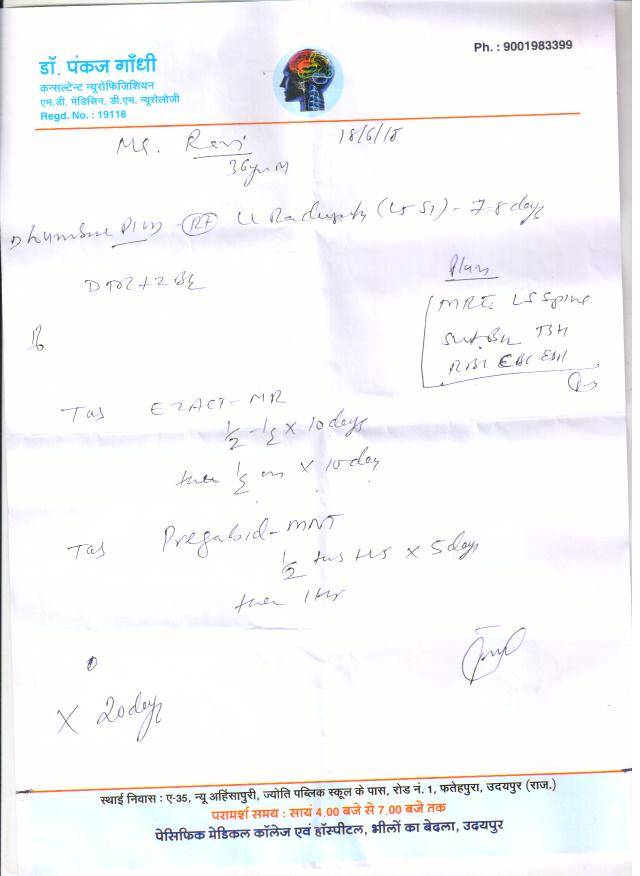 Ph. : 9001983399
डॉ. पंकज गाँधी
कन्सल्टेन्ट न्यूरोफिजिशियन
एम.डी. मेडिसिन, डी.एम. न्यूरोलोजी
Regd. No. : 19118
Mr. Ravi 18/6/18
36yr M
(RT) LL (L5 S1) - 7-8 days
Plan
DTR +2 B/L
MRI LS Spine
TSH
Tab EZACT-MR
1/2 - 1/2 x 10 days
then 1/2 on x 10 day
Tab Pregabid-MNT
1/2 tab HS x 5 days
then 1 HS
x 20 days
स्थाई निवास : ए-35, न्यू अहिंसापुरी, ज्योति पब्लिक स्कूल के पास, रोड नं. 1, फतेहपुरा, उदयपुर (राज.)
परामर्श समय : सायं 4.00 बजे से 7.00 बजे तक
पेसिफिक मेडिकल कॉलेज एवं हॉस्पीटल, भीलों का बेदला, उदयपुर